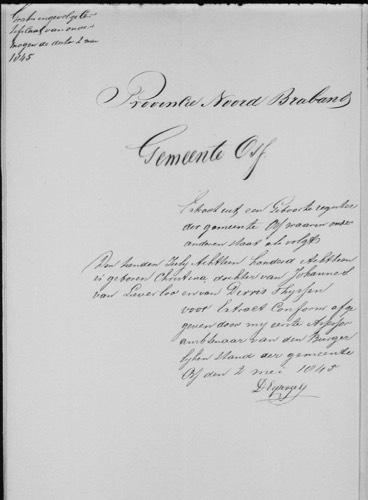 Gratis ingevolge cer-
tificaat van onver-
mogen de dato 2 mei
1845
Provintie Noord Braband
Gemeente Osf
Extract uit een Geboorte register
der gemeente Osf waarin onder
anderen staat als volgt
Den tienden July Achttien honderd Achttien
is geboren Christina dochter van Johannes
van Laverloo en van Dirris Thyssen
voor Extract Conform afge
geven door my eerste
ambtenaar van den Burger
lyken stand der gemeente
Osf den 2 mei 1845